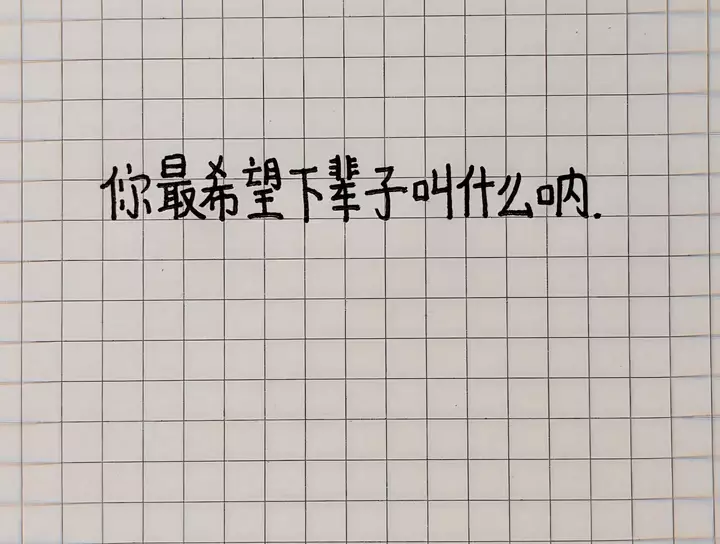 你最希望下辈子叫什么呐.